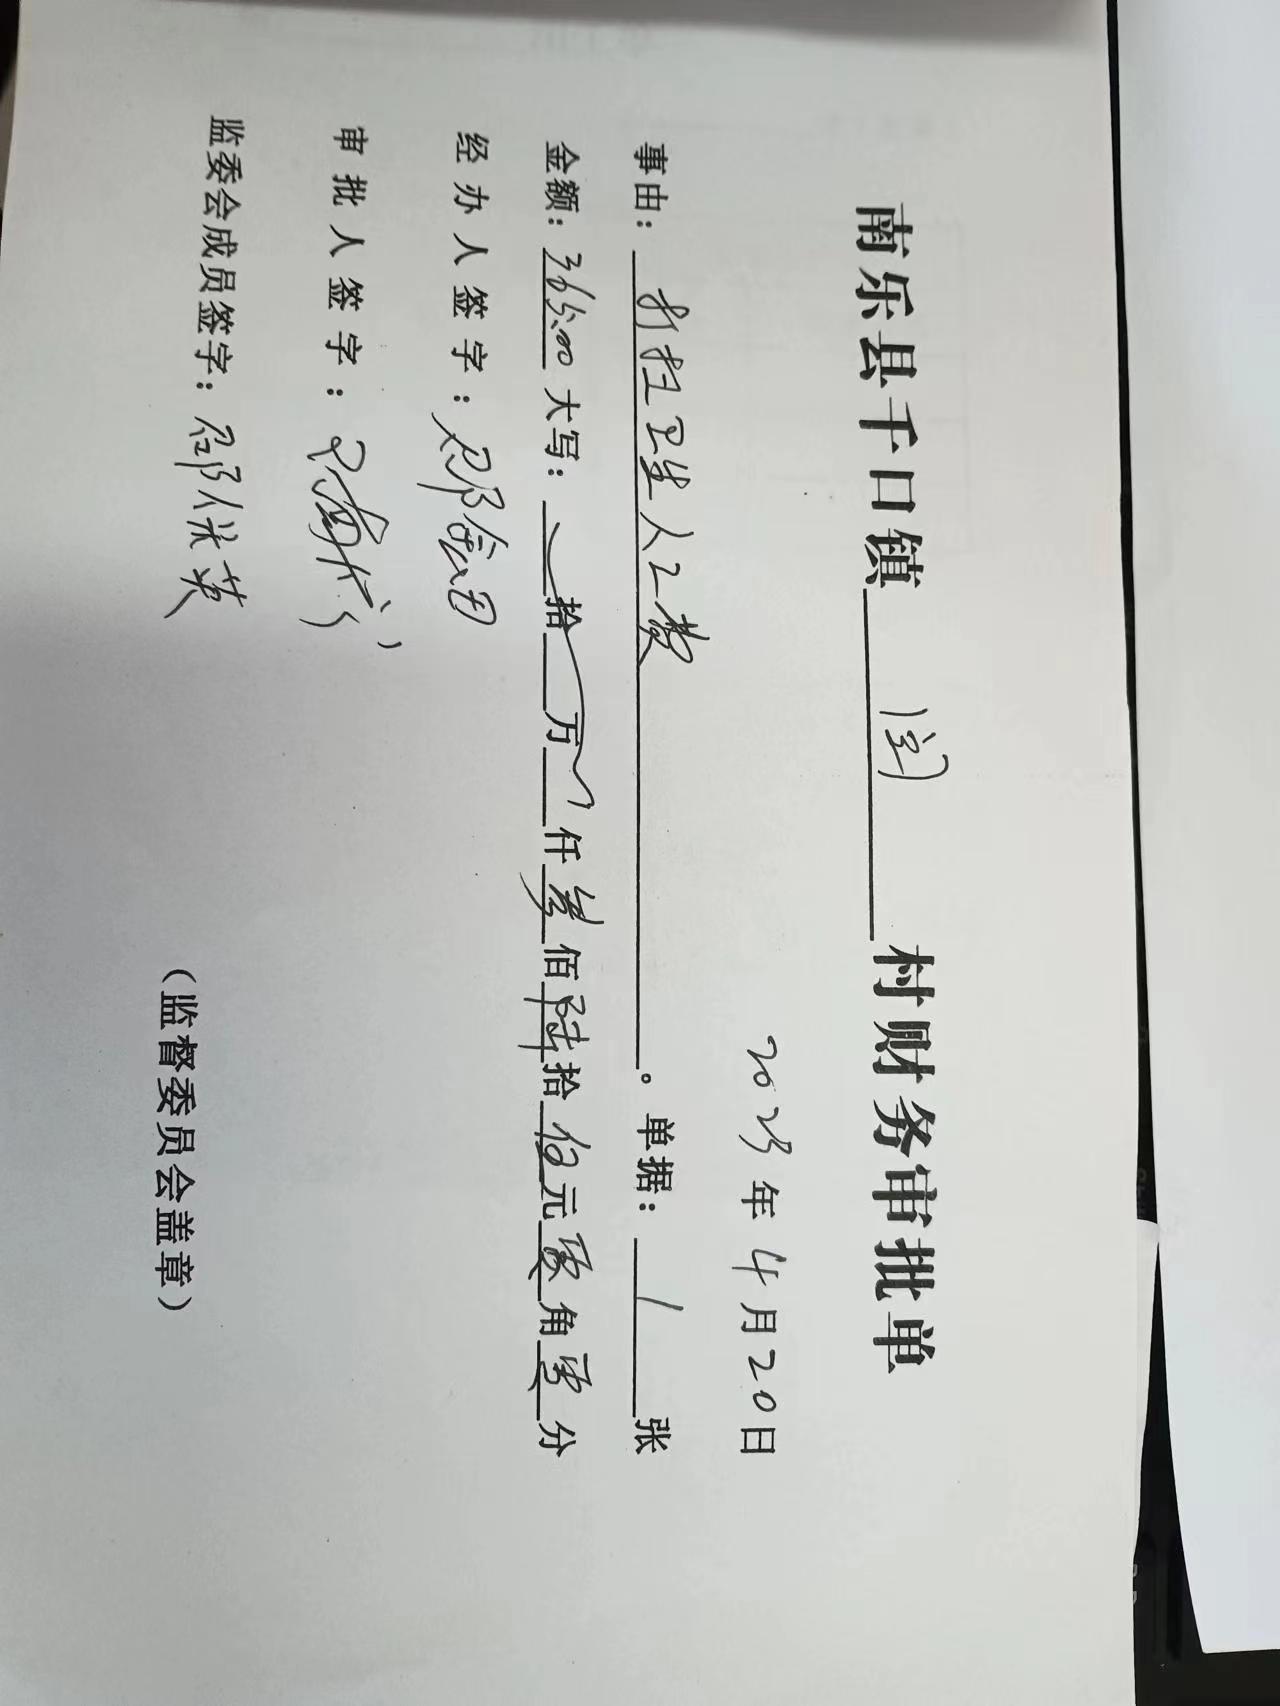 南乐县千口镇 村财务审批单
2023年4月20日
事由：打扫卫生人工费。单据：1张
金额：365.00大写：拾万仟叁佰陆拾伍元零角零分
经办人签字：
审批人签字：
监委会成员签字：
（监督委员会盖章）